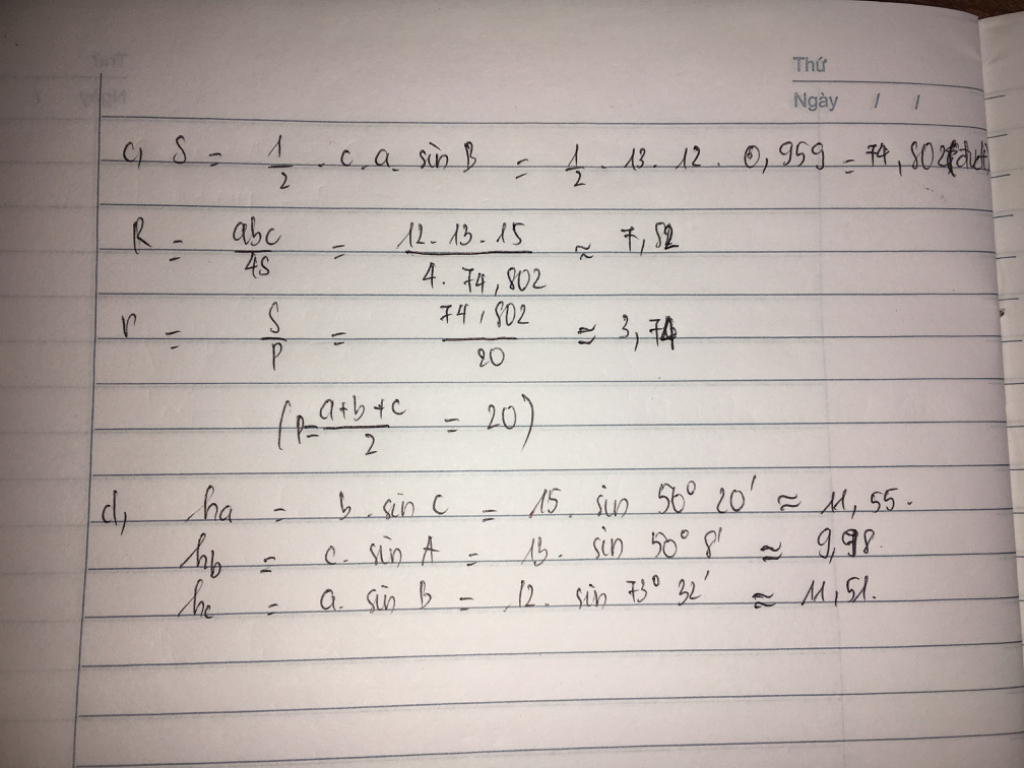 Thứ
Ngày / /
c, S = 1/2 . c.a. sin B = 1/2 . 13. 12. 0,959 = 74,802 (đvdt)
R = abc/4S = 12.13.15/4.74,802 ≈ 7,82
r = S/P = 74,802/20 ≈ 3,74
(P = a+b+c/2 = 20)
d, ha = b.sin C = 15. sin 50° 20' ≈ 11,55.
hb = c. sin A = 13. sin 50° 8' ≈ 9,98.
hc = a. sin B = 12. sin 73° 32' ≈ 11,51.